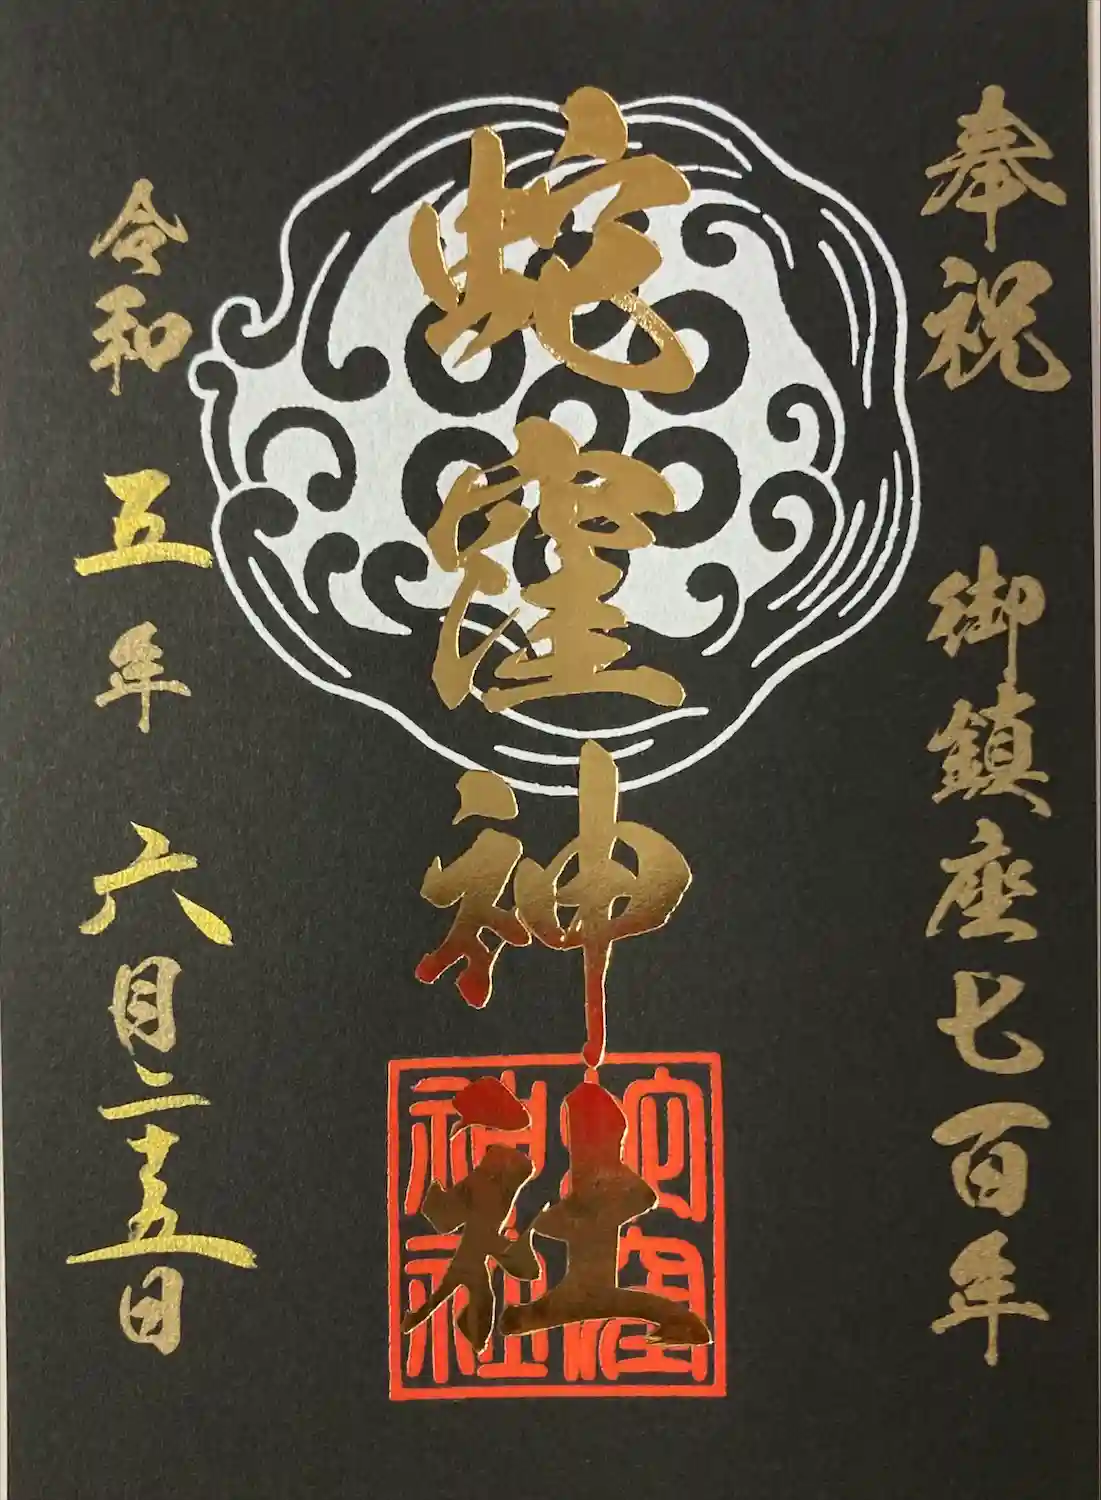 奉祝 御鎮座七百年
蛇窪神社
蛇窪神社
令和五年六月二十五日